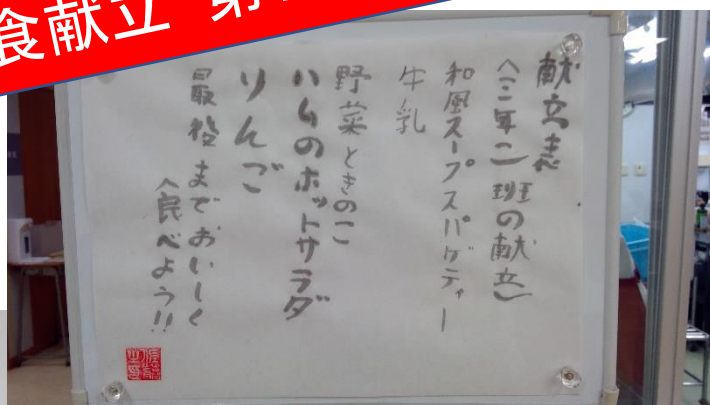 食献立 第
献立表
(三年二班の献立)
和風スープスパゲティー
牛乳
野菜ときのこ
ハムのホットサラダ
りんご
最後までおいしく
食べよう!!